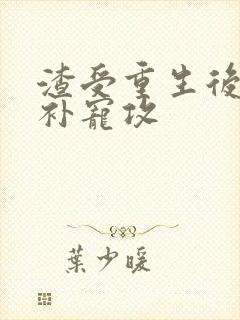 渣受重生後
补寵攻
葉少暖